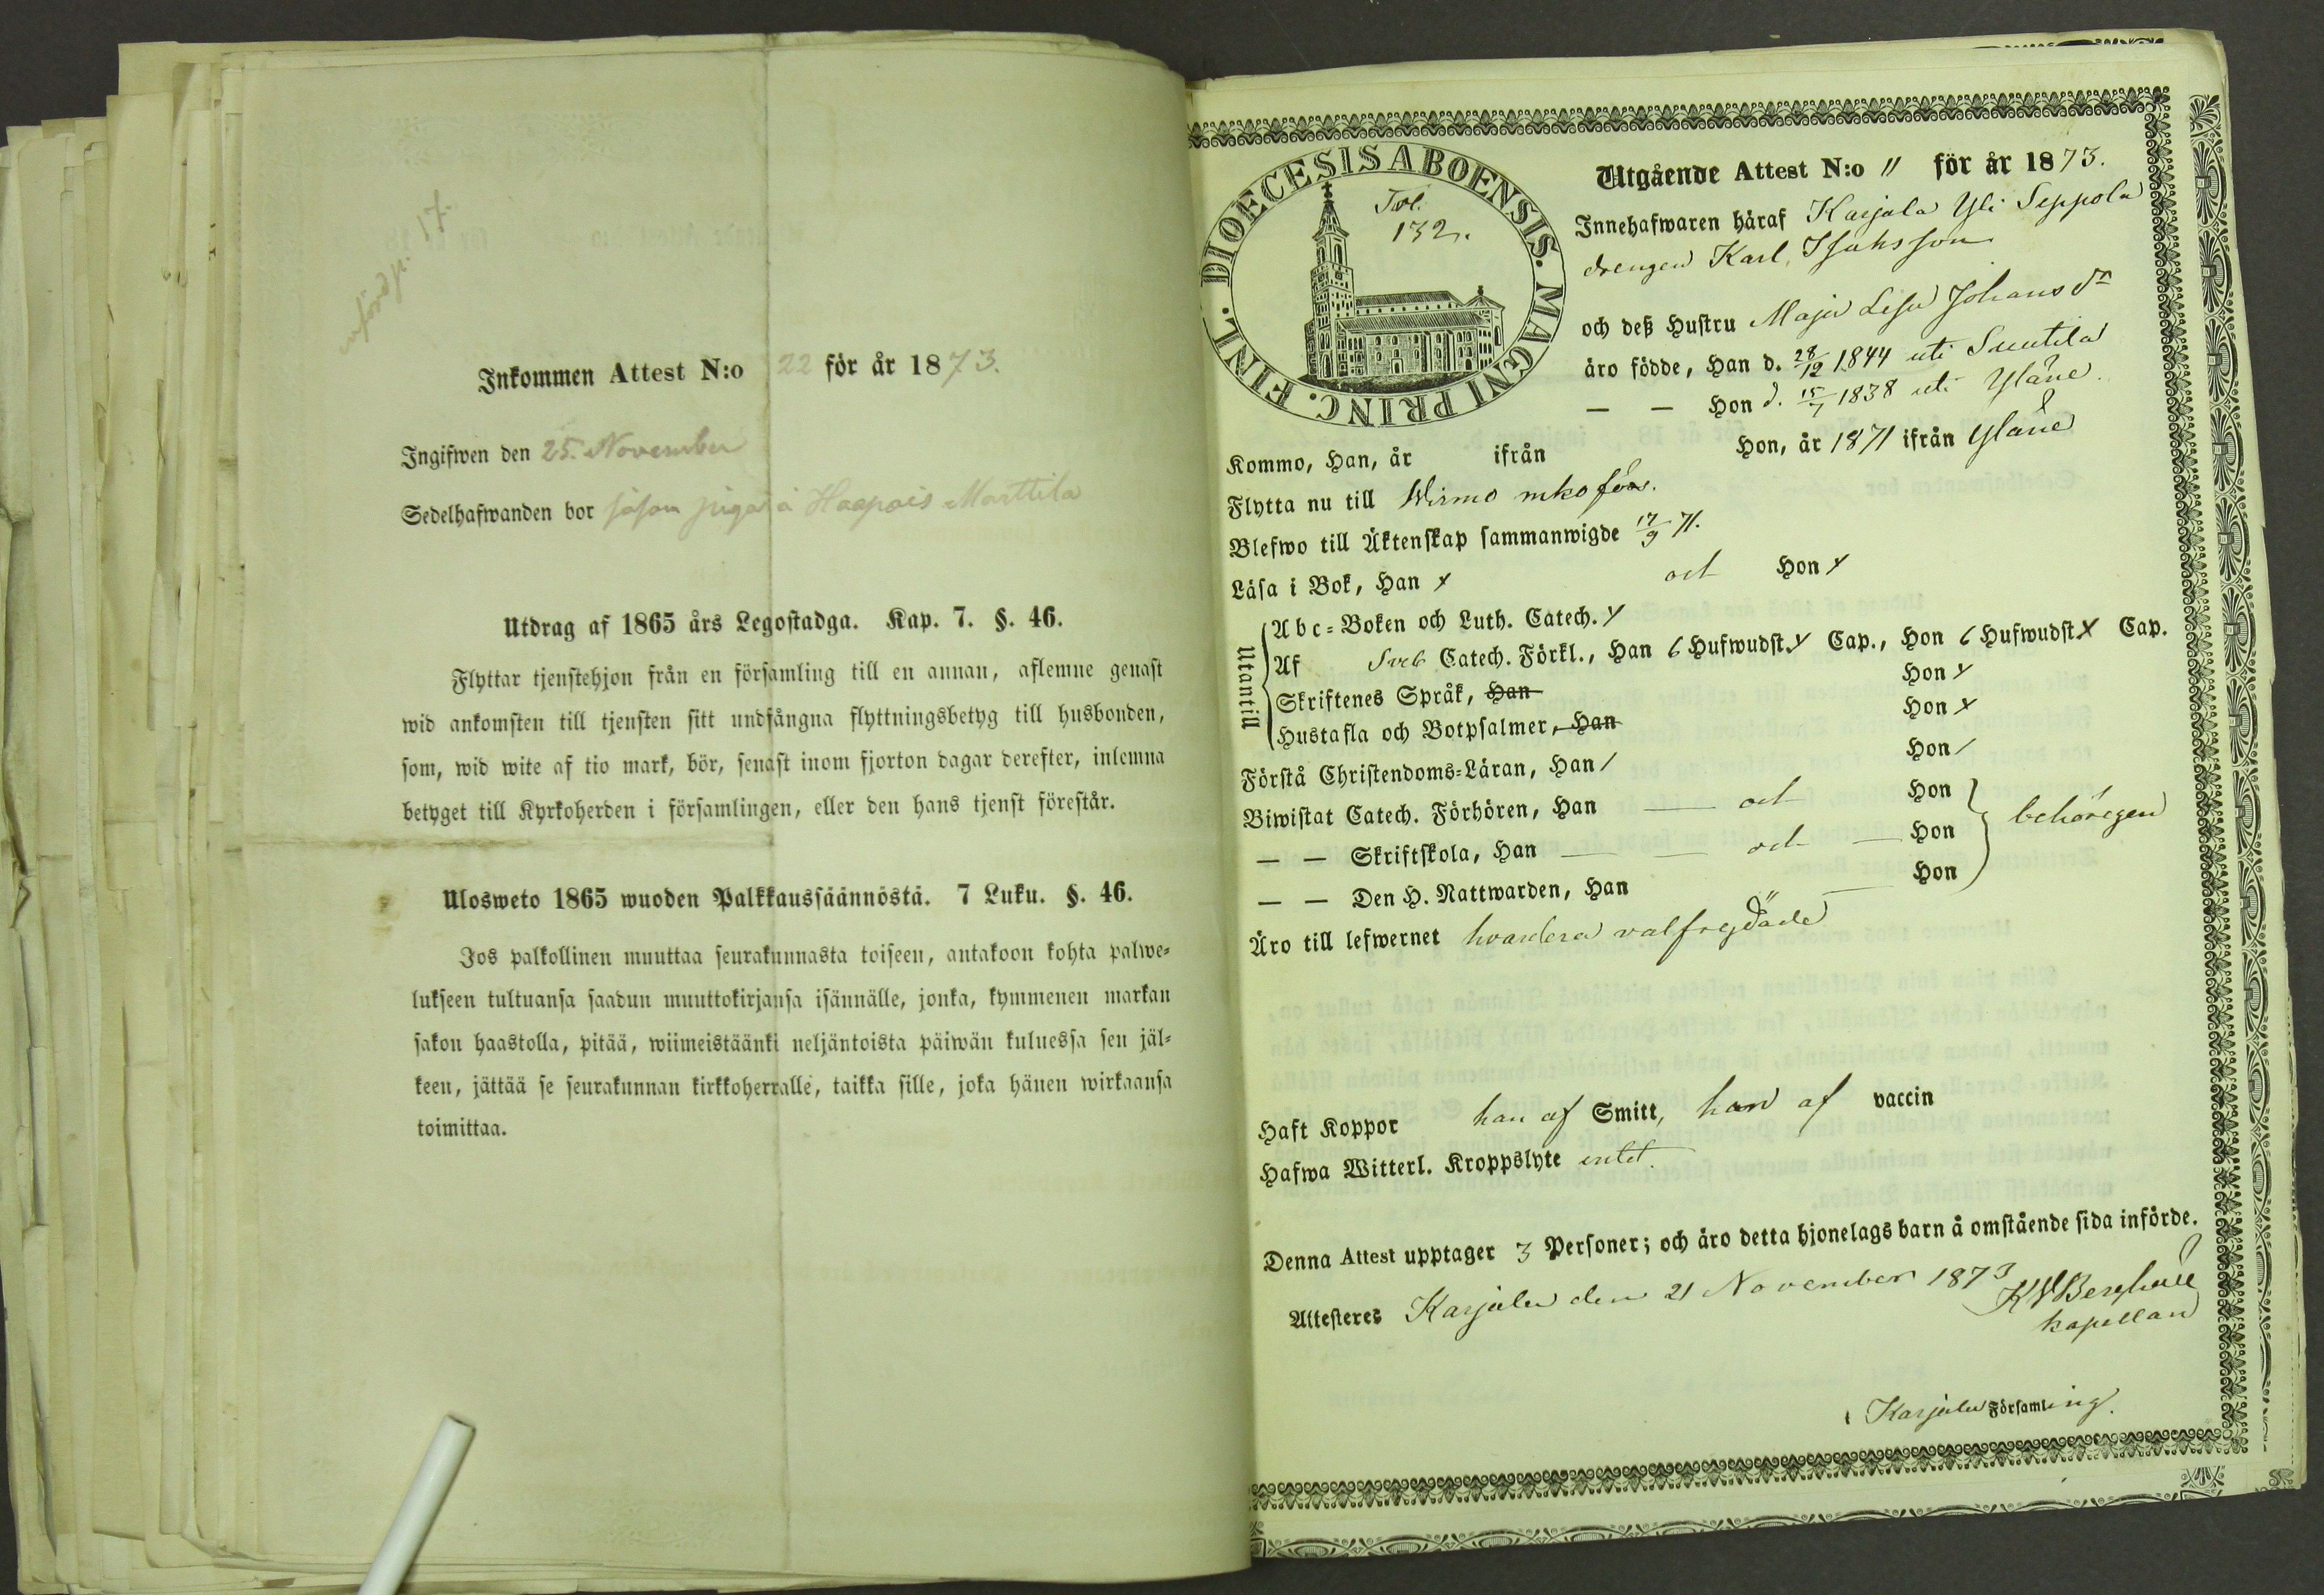 införd p. 17.
Inkommen Attest N:o 22 för år 1873.
Ingifwen den 25. November
Sedelhafwanden bor såsom piga å Haapois Marttila
Utdrag af 1865 års Legostadga. Kap. 7. §. 46.
Flyttar tjenstehjon från en församling till en annan, aflemne genast
wid ankomsten till tjensten sitt undfångna flyttningsbetyg till husbonden,
som, wid wite af tio mark, bör, senast inom fjorton dagar derefter, inlemna
betyget till Kyrkoherden i församlingen, eller den hans tjenst förestår.
Ulosweto 1865 wuoden Palkkaussäännöstä. 7 Luku. §. 46.
Jos palkollinen muuttaa seurakunnasta toiseen, antakoon kohta palwe=
lukseen tultuansa saadun muuttokirjansa isännälle, jonka, kymmenen markan
sakon haastolla, pitää, wiimeistäänki neljäntoista päiwän kuluessa sen jäl=
keen, jättää se seurakunnan kirkkoherralle, taikka sille, joka hänen wirkaansa
toimittaa.
DIOECESIS ABOENSIS. MAGNI PRINC. FINL.
Tvl.
132.
Utgående Attest N:o 11 för år 1873.
Innehafwaren häraf Karjala Yli Seppola
drengen Karl Isaksson
och deß Hustru Maja Lisa Johans dr
äro födde, Han d. 28/12 1844 uti Suutila
— — Hon d. 15/7 1838 uti Yläne.
Kommo, Han, år ifrån Hon, år 1871 ifrån Yläne
Flytta nu till Wirmo mko förs.
Blefwo till Äktenskap sammanwigde 17/9 71.
Läsa i Bok, Han x och Hon x
Utantill
Abc=Boken och Luth. Catech. x
Af Sveb Catech. Förkl., Han 6 Hufwudst. x Cap., Hon 6 Hufwudst x Cap.
Skriftenes Språk, Han Hon x
Hustafla och Botpsalmer, Han Hon x
Förstå Christendoms=Läran, Han / Hon /
Biwistat Catech. Förhören, Han — och Hon
— — Skriftskola, Han — — och — Hon behörigen
— — Den H. Nattwarden, Han — Hon
Äro till lefwernet hvardera valfrejdade
Haft Koppor han af Smitt, hon af vaccin
Hafwa Witterl. Kroppslyte intet.
Denna Attest upptager 3 Personer; och äro detta hjonelags barn å omstående sida införde.
Attesteres Karjala den 21 November 1873
kapellan
i Karjala Församling.